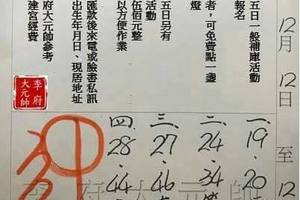 12月12日至12
五日一般補庫活動
報名
者，可免費點一盞
燈
五日另有
活動
伍佰元整
以方便作業
匯款後來電或臉書私訊
出生年月日、現居地址
府大元帥參考
建宮經費
李府
大元帥
一.19.20
二.24.34
三.27.46
四.28.44
李府大元帥